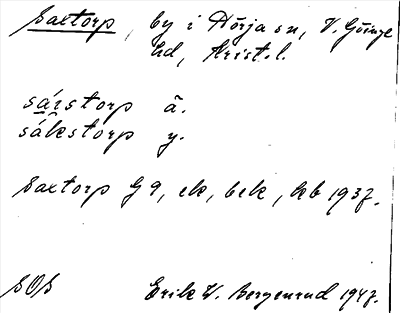 Saxtorp, by i Hörja sn, V. Göinge
hd, Krist. l.
sárstorp ä.
sákstorp y.
Saxtorp G 9, ek, bek, kb 1937.
SOS Erik W. Bergenrud 1947.